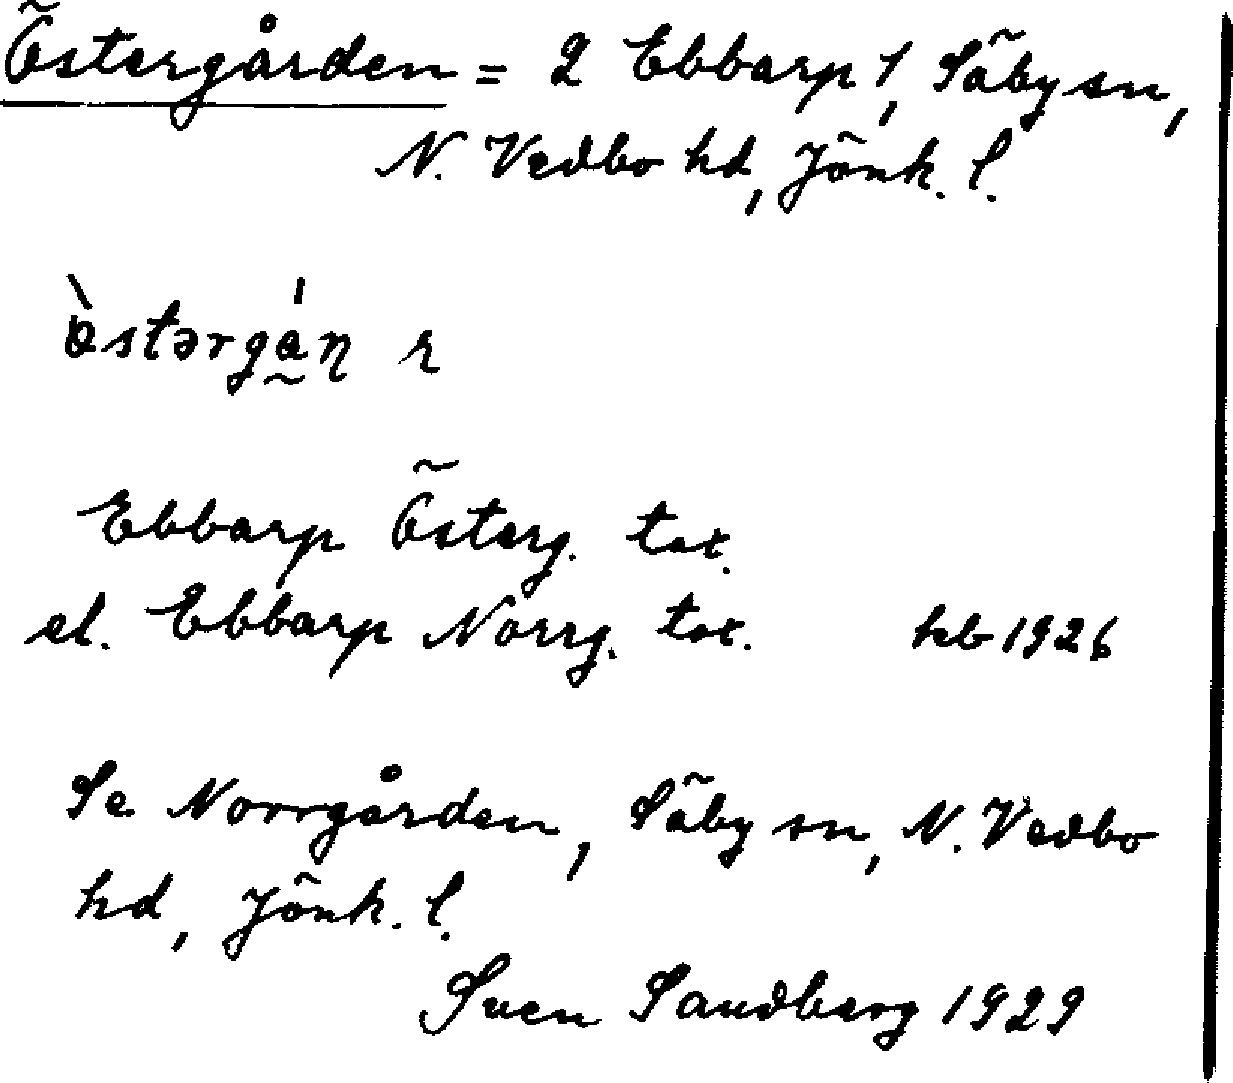 Östergården = 2 Ebbarp 1, Säby sn,
N. Vedbo hd, Jönk. l.
östərgån r
Ebbarp Österg. tax.
el. Ebbarp Norrg. tax. hb 1926
Se Norrgården, Säby sn, N. Vedbo
hd, Jönk. l.
Sven Sandberg 1929